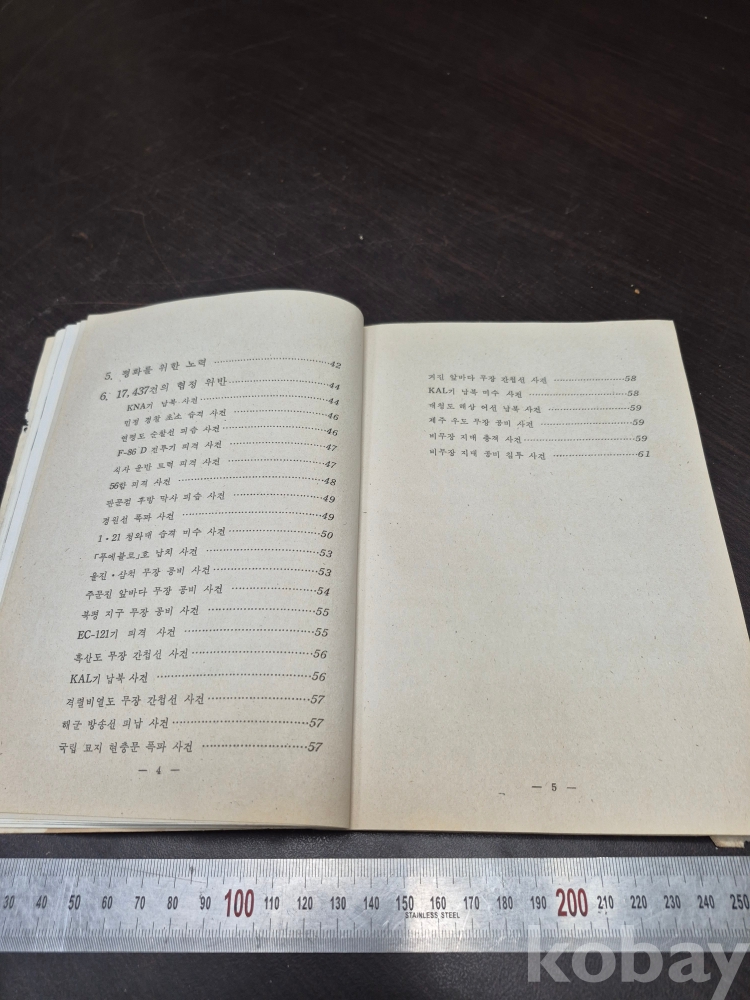 5. 평화를 위한 노력 ······················42
6. 17,437건의 협정 위반 ······················44
KNA기 납북 사건 ······················44
민정 경찰 초소 습격 사건 ······················46
연평도 순찰선 피습 사건 ······················46
F-86 D 전투기 피격 사건 ······················47
식사 운반 트럭 피격 사건 ······················47
56함 피격 사건 ······················48
판문점 후방 막사 피습 사건 ······················49
경원선 폭파 사건 ······················49
1·21 청와대 습격 미수 사건 ······················50
「푸에블로」호 납치 사건 ······················53
울진·삼척 무장 공비 사건 ······················53
주문진 앞바다 무장 공비 사건 ······················54
북평 지구 무장 공비 사건 ······················55
EC-121기 피격 사건 ······················55
흑산도 무장 간첩선 사건 ······················56
KAL기 납북 사건 ······················56
격렬비열도 무장 간첩선 사건 ······················57
해군 방송선 피납 사건 ······················57
국립 묘지 현충문 폭파 사건 ······················57
— 4 —
앞바다 무장 간첩선 사건 ······················58
KAL기 납북 미수 사건 ······················58
해상 어선 납북 사건 ······················59
제주 우도 무장 공비 사건 ······················59
비무장 지대 총격 사건 ······················59
비무장 지대 공비 침투 사건 ······················61
— 5 —
30 40 50 60 70 80 90 100 110 120 130 140 150 160 170 180 190 200 210 220 230 240 250
STAINLESS STEEL
kobay